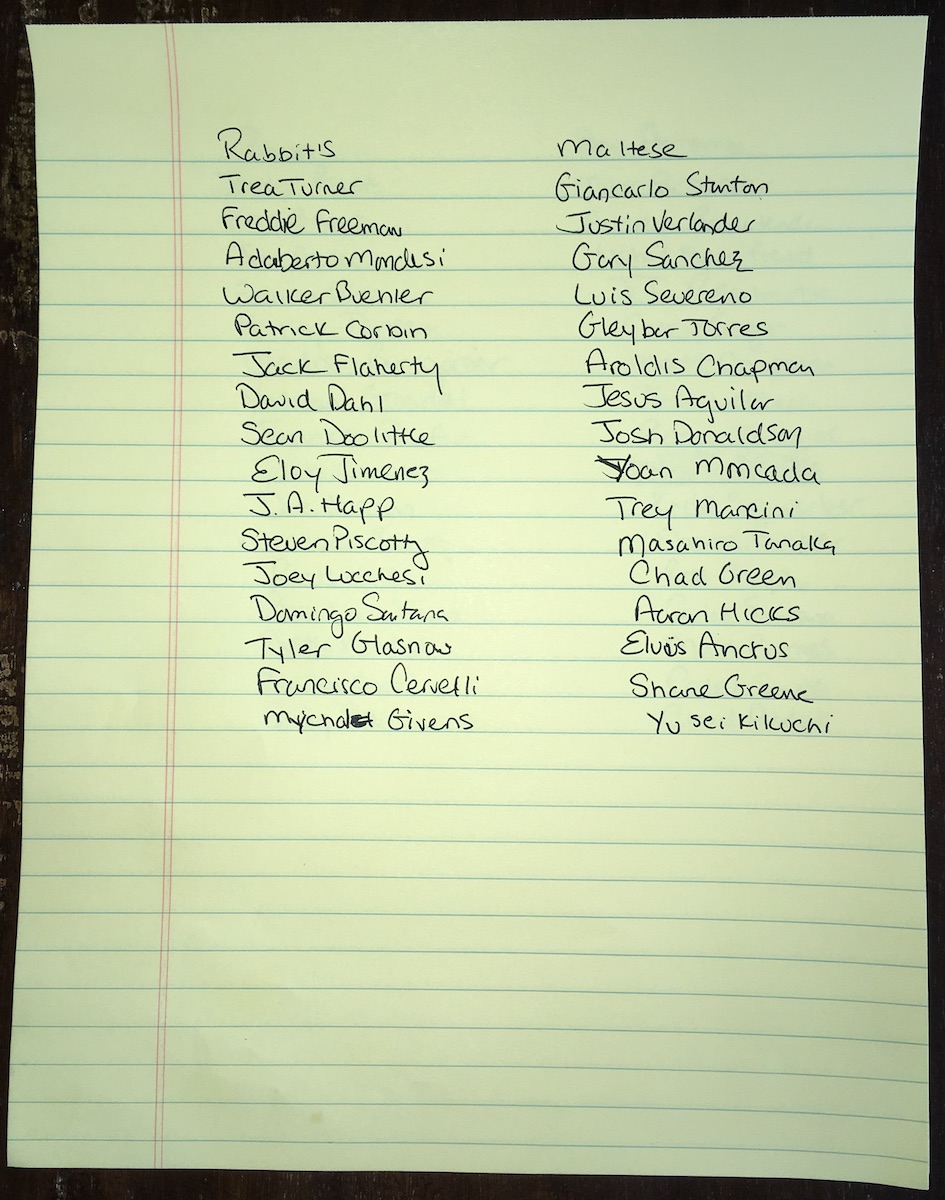 Rabbit's Maltese
Trea Turner Giancarlo Stanton
Freddie Freeman Justin Verlander
Adaberto Mondesi Gary Sanchez
Walker Buehler Luis Severeno
Patrick Corbin Gleyber Torres
Jack Flaherty Aroldis Chapman
David Dahl Jesus Aguilar
Sean Doolittle Josh Donaldson
Eloy Jimenez Yoan Moncada
J. A. Happ Trey Mancini
Steven Piscotty Masahiro Tanaka
Joey Lucchesi Chad Green
Domingo Santana Aaron Hicks
Tyler Glasnow Elvis Andrus
Francisco Cervelli Shane Greene
Mychal Givens Yu sei Kikuchi